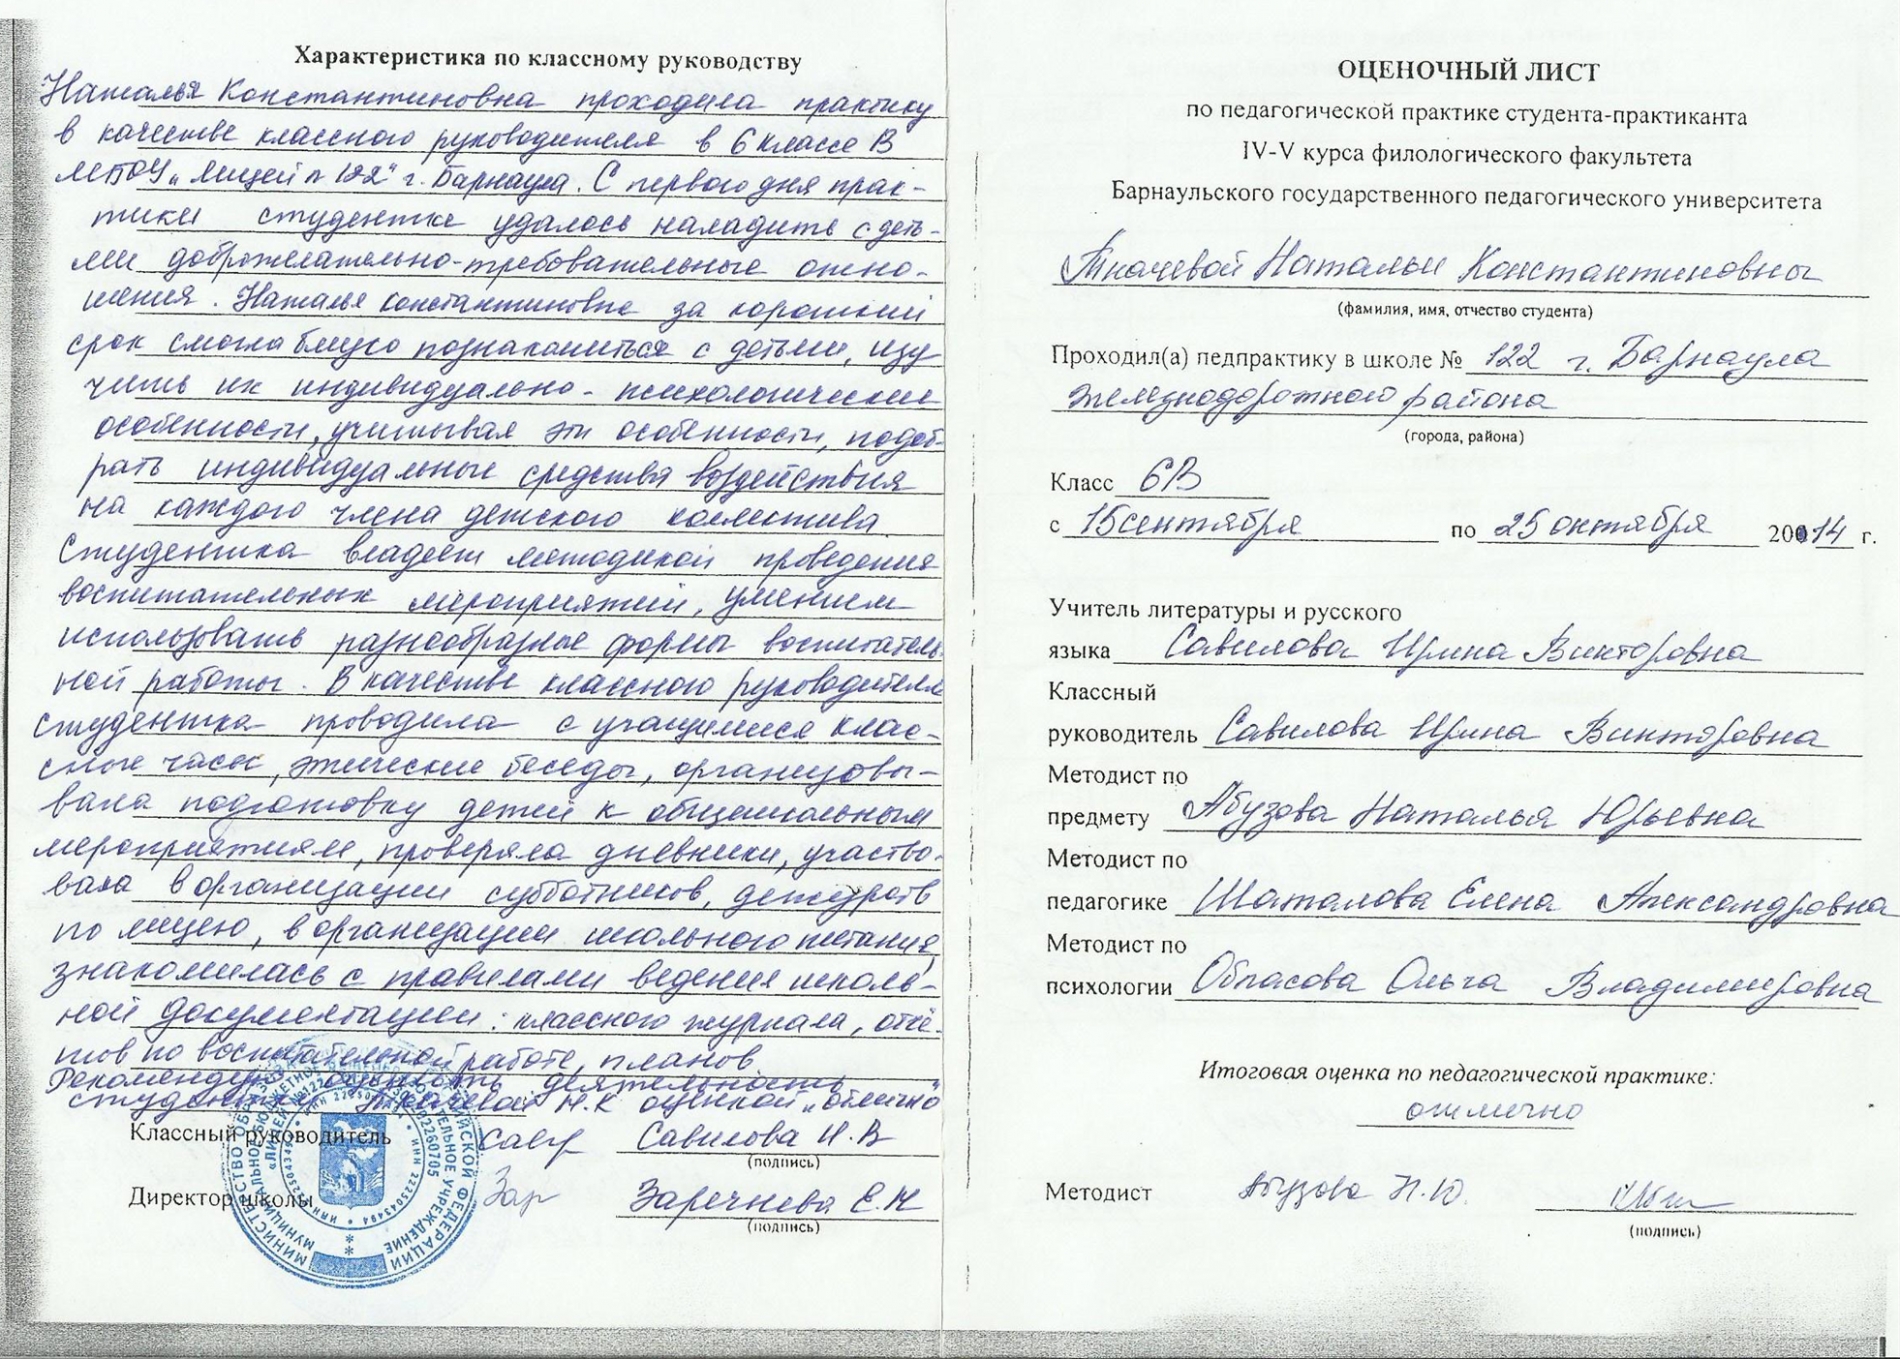 Характеристика по классному руководству
Наталья Константиновна проходила практику
в качестве классного руководителя в 6 классе В
МБОУ „Лицей № 122" г. Барнаула. С первого дня прак-
тики студентке удалось наладить с деть-
ми доброжелательно-требовательные отно-
шения. Наталья Константиновна за короткий
срок смогла близко познакомиться с детьми, изу
чить их индивидуально-психологические
особенности, учитывая эти особенности, подоб-
рать индивидуальные средства воздействия
на каждого члена детского коллектива
Студентка владеет методикой проведения
воспитательных мероприятий, умением
использовать разнообразные формы воспитатель-
ной работы. В качестве классного руководителя
студентка проводила с учащимися клас-
сные часы, этические беседы, организовы-
вала подготовку детей к общешкольным
мероприятиям, проверяла дневники, участво-
вала в организации субботников, дежурств
по лицею, в организации школьного питания,
знакомилась с правилами ведения школь-
ной документации: классного журнала, отчё-
тов по воспитательной работе, планов
Рекомендую оценить деятельность
студентки Ткачевой Н.К оценкой „отлично"
Классный руководитель Савилова И.В
(подпись)
Директор школы Зар Заречнева Е.Н
(подпись)
МИНИСТЕРСТВО ОБРАЗОВАНИЯ РОССИЙСКОЙ ФЕДЕРАЦИИ
МУНИЦИПАЛЬНОЕ БЮДЖЕТНОЕ УЧРЕЖДЕНИЕ
«ЛИЦЕЙ №122»
ОЦЕНОЧНЫЙ ЛИСТ
по педагогической практике студента-практиканта
IV-V курса филологического факультета
Барнаульского государственного педагогического университета
Ткачевой Натальи Константиновны
(фамилия, имя, отчество студента)
Проходил(а) педпрактику в школе № 122 г. Барнаула
Железнодорожного района
(города, района)
Класс 6В
с 15 сентября по 25 октября 2014 г.
Учитель литературы и русского
языка Савилова Ирина Викторовна
Классный
руководитель Савилова Ирина Викторовна
Методист по
предмету Абузова Наталья Юрьевна
Методист по
педагогике Шаталова Елена Александровна
Методист по
психологии Обласова Ольга Владимировна
Итоговая оценка по педагогической практике:
отлично
Методист Абузова Н.Ю.
(подпись)